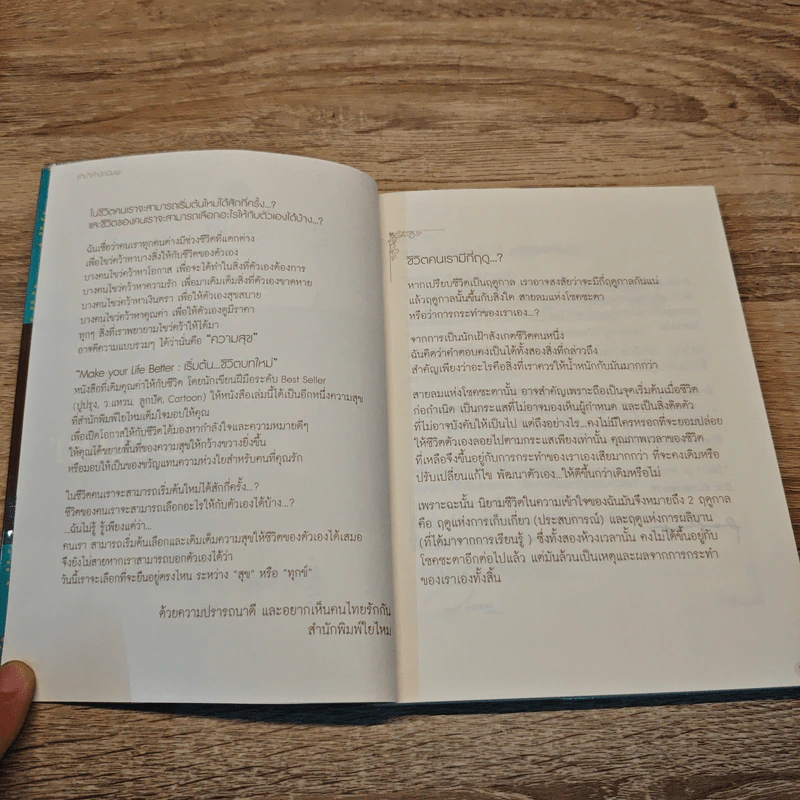 คำนำสำนักพิมพ์
ในชีวิตคนเราจะสามารถเริ่มต้นใหม่ได้สักกี่ครั้ง...?
และชีวิตของคนเราจะสามารถเลือกอะไรให้กับตัวเองได้บ้าง...?
ฉันเชื่อว่าคนเราทุกคนต่างมีช่วงชีวิตที่แตกต่าง
เพื่อไขว่คว้าหาบางสิ่งให้กับชีวิตของตัวเอง
บางคนไขว่คว้าหาโอกาส เพื่อจะได้ทำในสิ่งที่ตัวเองต้องการ
บางคนไขว่คว้าหาความรัก เพื่อมาเติมเต็มสิ่งที่ตัวเองขาดหาย
บางคนไขว่คว้าหาเงินตรา เพื่อให้ตัวเองสุขสบาย
บางคนไขว่คว้าหาคุณค่า เพื่อให้ตัวเองดูมีราคา
ทุกๆ สิ่งที่เราพยายามไขว่คว้าให้ได้มา
อาจตีความแบบรวมๆ ได้ว่านั่นคือ "ความสุข"
"Make your Life Better : เริ่มต้น...ชีวิตบทใหม่"
หนังสือที่เติมคุณค่าให้กับชีวิต โดยนักเขียนฝีมือระดับ Best Seller
(ปูปรุง, ว.แหวน, ลูกปัด, Cartoon) ให้หนังสือเล่มนี้ได้เป็นอีกหนึ่งความสุข
ที่สำนักพิมพ์ใยไหมเต็มใจมอบให้คุณ
เพื่อเปิดโอกาสให้กับชีวิตได้มองหากำลังใจและความหมายดีๆ
ให้คุณได้ขยายพื้นที่ของความสุขให้กว้างขวางยิ่งขึ้น
หรือมอบให้เป็นของขวัญแทนความห่วงใยสำหรับคนที่คุณรัก
ในชีวิตคนเราจะสามารถเริ่มต้นใหม่ได้สักกี่ครั้ง...?
ชีวิตของคนเราจะสามารถเลือกอะไรให้กับตัวเองได้บ้าง...?
...ฉันไม่รู้ รู้เพียงแต่ว่า...
คนเรา สามารถเริ่มต้นเลือกและเติมเต็มความสุขให้ชีวิตของตัวเองได้เสมอ
จึงยังไม่สายหากเราสามารถบอกตัวเองได้ว่า
วันนี้เราจะเลือกที่จะยืนอยู่ตรงไหน ระหว่าง "สุข" หรือ "ทุกข์"
ด้วยความปรารถนาดี และอยากเห็นคนไทยรักกัน
สำนักพิมพ์ใยไหม
ชีวิตคนเรามีกี่ฤดู...?
หากเปรียบชีวิตเป็นฤดูกาล เราอาจสงสัยว่าจะมีกี่ฤดูกาลกันแน่
แล้วฤดูกาลนั้นขึ้นกับสิ่งใด สายลมแห่งโชคชะตา
หรือว่าการกระทำของเราเอง...?
จากการเป็นนักเฝ้าสังเกตชีวิตคนหนึ่ง
ฉันคิดว่าคำตอบคงเป็นได้ทั้งสองสิ่งที่กล่าวถึง
สำคัญเพียงว่าอะไรคือสิ่งที่เราควรให้น้ำหนักกับมันมากกว่า
สายลมแห่งโชคชะตานั้น อาจสำคัญเพราะถือเป็นจุดเริ่มต้นเมื่อชีวิต
ก่อกำเนิด เป็นกระแสที่ไม่อาจมองเห็นผู้กำหนด และเป็นสิ่งติดตัว
ที่ไม่อาจบังคับให้เป็นไป แต่ถึงอย่างไร...คงไม่มีใครหรอกที่จะยอมปล่อย
ให้ชีวิตตัวเองลอยไปตามกระแสเพียงเท่านั้น คุณภาพเวลาของชีวิต
ที่เหลือจึงขึ้นอยู่กับการกระทำของเราเองเสียมากกว่า ที่จะคงเดิมหรือ
ปรับเปลี่ยนแก้ไข พัฒนาตัวเอง...ให้ดีขึ้นกว่าเดิมหรือไม่
เพราะฉะนั้น นิยามชีวิตในความเข้าใจของฉันมันจึงหมายถึง 2 ฤดูกาล
คือ ฤดูแห่งการเก็บเกี่ยว (ประสบการณ์) และฤดูแห่งการผลิบาน
(ที่ได้มาจากการเรียนรู้ ) ซึ่งทั้งสองห้วงเวลานั้น คงไม่ได้ขึ้นอยู่กับ
โชคชะตาอีกต่อไปแล้ว แต่มันล้วนเป็นเหตุและผลจากการกระทำ
ของเราเองทั้งสิ้น